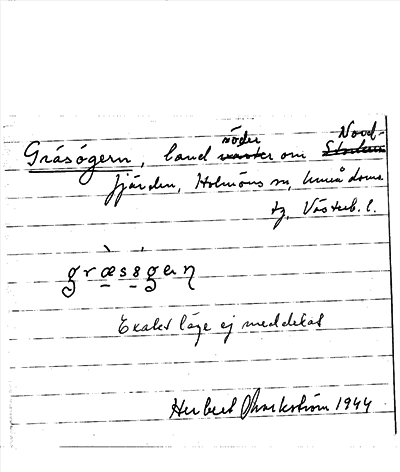 Gråsögern, land söder om Nord-
fjärden, Holmöns sn, Umeå doms-
tg, Västerb. l.
græsøgeṇ
Exakt läge ej meddelat
Herbert Markström 1944